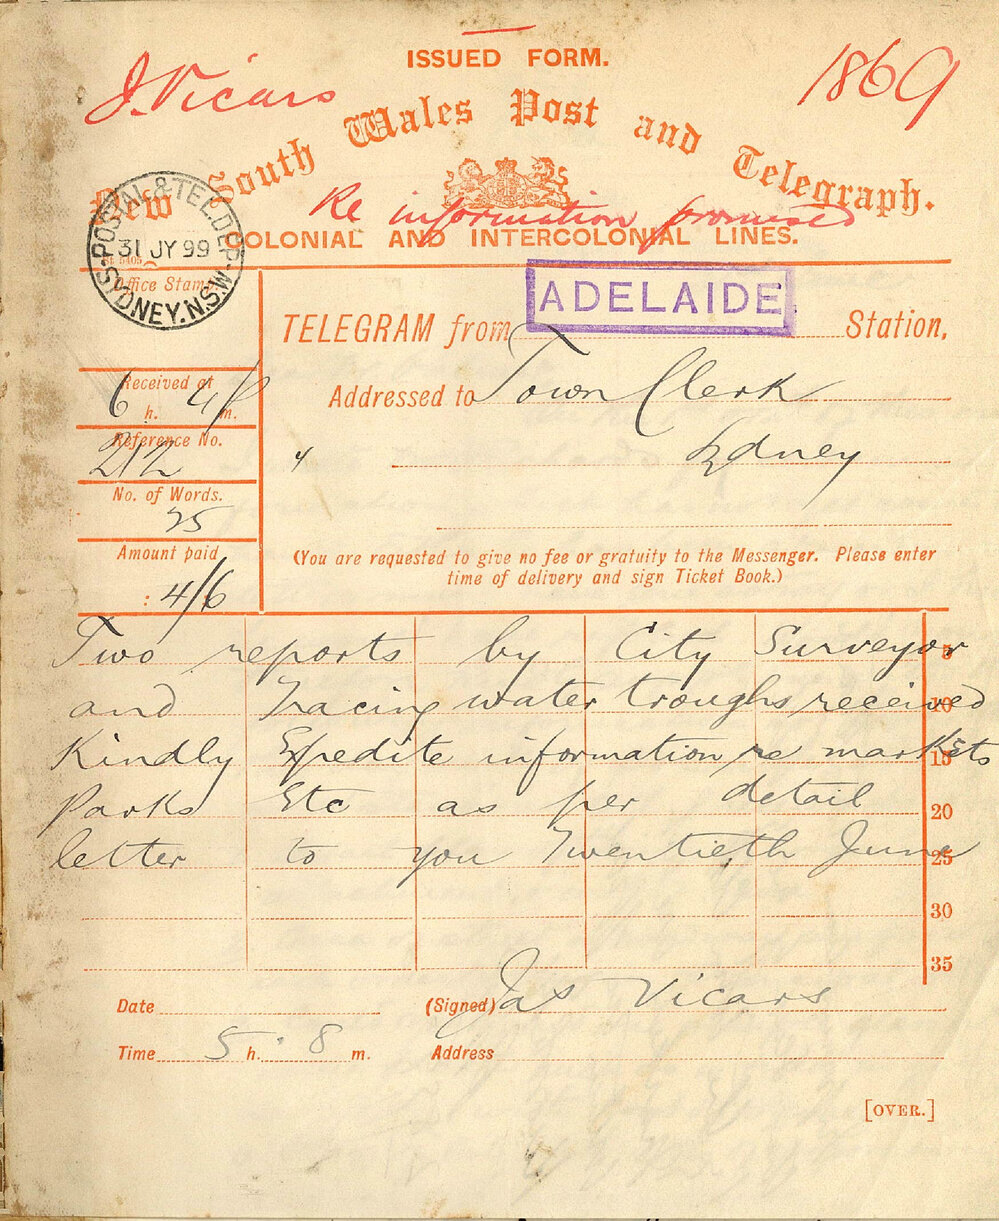 ISSUED FORM.
J. Vicars
1869
New South Wales Post and Telegraph.
Re information promised
COLONIAL AND INTERCOLONIAL LINES.
POSTAL & TEL. DEP.
31 JY 99
SYDNEY. N.S.W
Office Stamp
TELEGRAM from ADELAIDE Station,
Received at
6 h. 4 m.
Addressed to Town Clerk
Reference No.
212
" Sydney
No. of Words.
25
Amount paid
: 4/6
(You are requested to give no fee or gratuity to the Messenger. Please enter
time of delivery and sign Ticket Book.)
Two reports by City Surveyor 5
and Tracing water troughs received 10
Kindly Expedite information re markets 15
Parks Etc as per detail 20
letter to you Twentieth June 25
30
35
Date (Signed) Jas Vicars
Time 5 h. 8 m. Address
[OVER.]